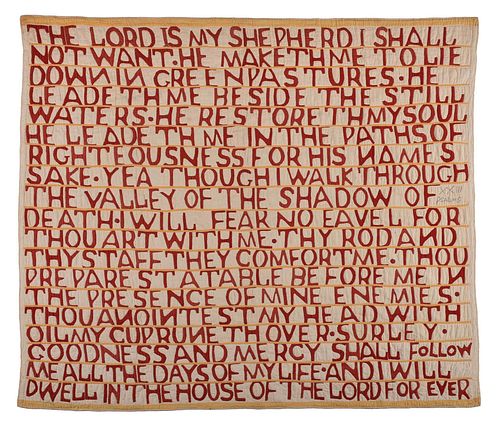 THE LORD IS MY SHEPHERD I SHALL
NOT WANT · HE MAKETH ME TO LIE
DOWN IN GREEN PASTURES · HE
LEADETH ME BESIDE THE STILL
WATERS · HE RESTORETH MY SOUL
HE LEADETH ME IN THE PATHS OF
RIGHTEOUSNESS FOR HIS NAMES
SAKE · YEA THOUGH I WALK THROUGH
THE VALLEY OF THE SHADOW OF
XXIII
PSALMS
DEATH · I WILL FEAR NO EAVEL FOR
THOU ART WITH ME · THY ROD AND
THY STAFF THEY COMFORT ME · THOU
PREPAREST A TABLE BEFORE ME IN
THE PRESENCE OF MINE ENEMIES ·
THOU ANOINTEST MY HEAD WITH
OIL MY CUP RUNETH OVER · SURLEY ·
GOODNESS AND MERCY SHALL FOLLOW
ME ALL THE DAYS OF MY LIFE · AND I WILL
DWELL IN THE HOUSE OF THE LORD FOR EVER